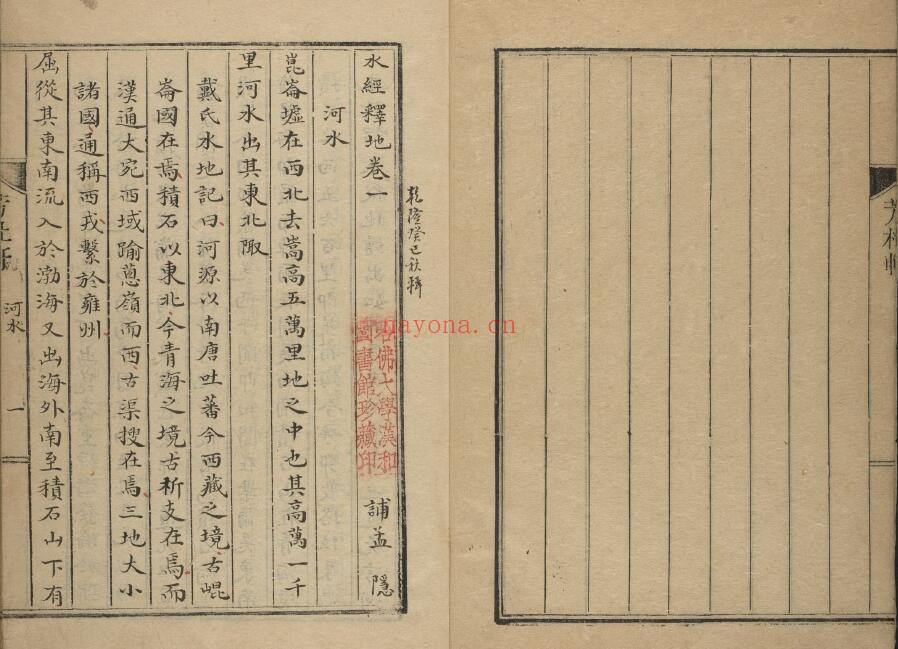 乾隆癸巳秋輯
水經釋地卷一
誧孟 隱
河水
崑崙墟在西北去嵩高五萬里地之中也其高萬一千
里河水出其東北陬
戴氏水地記曰河源以南唐吐蕃今西藏之境古崐
崙國在焉積石以東北今青海之境古析支在焉而
漢通大宛西域踰蔥嶺而西古渠搜在焉三地大小
諸國通稱西戎繫於雍州
屈從其東南流入於渤海又出海外南至積石山下有
河水
一
哈佛大學漢和
圖書館珍藏印
nayona.cn